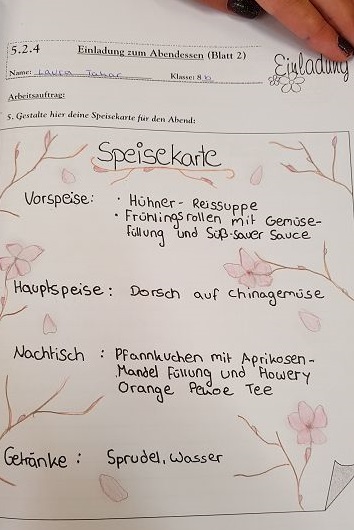 5.2.4 Einladung zum Abendessen (Blatt 2)
Name: Laura Jabar Klasse: 8 b
Einladung
Arbeitsauftrag:
5. Gestalte hier deine Speisekarte für den Abend:
Speisekarte
Vorspeise: · Hühner-Reissuppe
· Frühlingsrollen mit Gemüse-
füllung und Süß-sauer Sauce
Hauptspeise: Dorsch auf Chinagemüse
Nachtisch: Pfannkuchen mit Aprikosen-
Mandel Füllung und Flowery
Orange Pekoe Tee
Getränke: Sprudel, Wasser